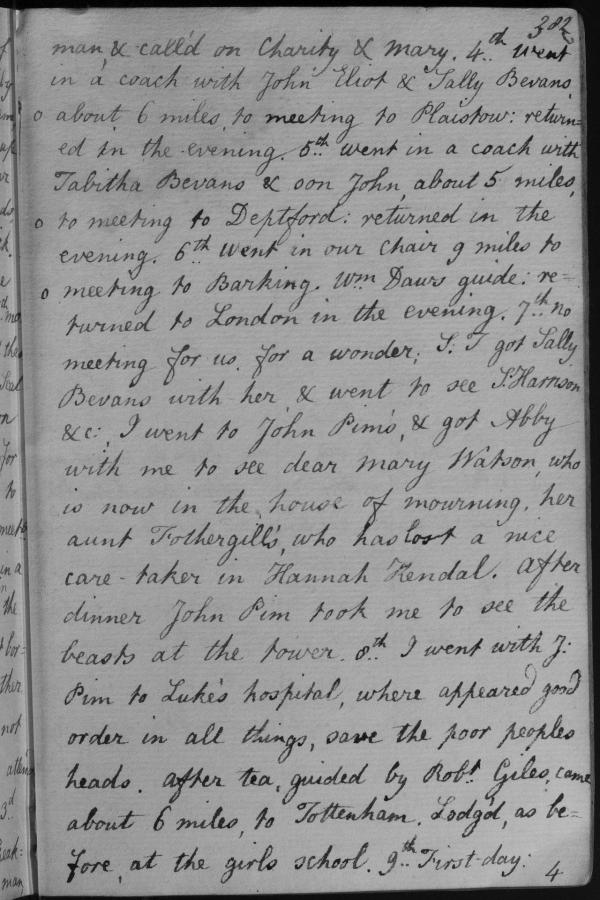 382
man & call'd on Charity & Mary. 4.th went
in a coach with John Eliot & Sally Bevans,
o about 6 miles, to meeting to Plaistow: return=
ed in the evening. 5.th went in a coach with
Tabitha Bevans & son John, about 5 miles,
o to meeting to Deptford: returned in the
evening. 6.th went in our chair 9 miles to
o meeting to Barking. Wm Daws guide: re=
turned to London in the evening. 7.th no
meeting for us, for a wonder; S: T got Sally
Bevans with her, & went to see S: Harrison
&c: I went to John Pim's, & got Abby
with me to see dear Mary Watson, who
is now in the house of mourning, her
aunt Fothergill's, who has lost a nice
care-taker in Hannah Kendal. After
dinner John Pim took me to see the
beasts at the tower. 8.th I went with J:
Pim to Luke's hospital, where appeared good
order in all things, save the poor peoples
heads. After tea, guided by Robt. Giles, came
about 6 miles, to Tottenham. Lodg'd, as be=
fore, at the girls school. 9.th First-day:
4